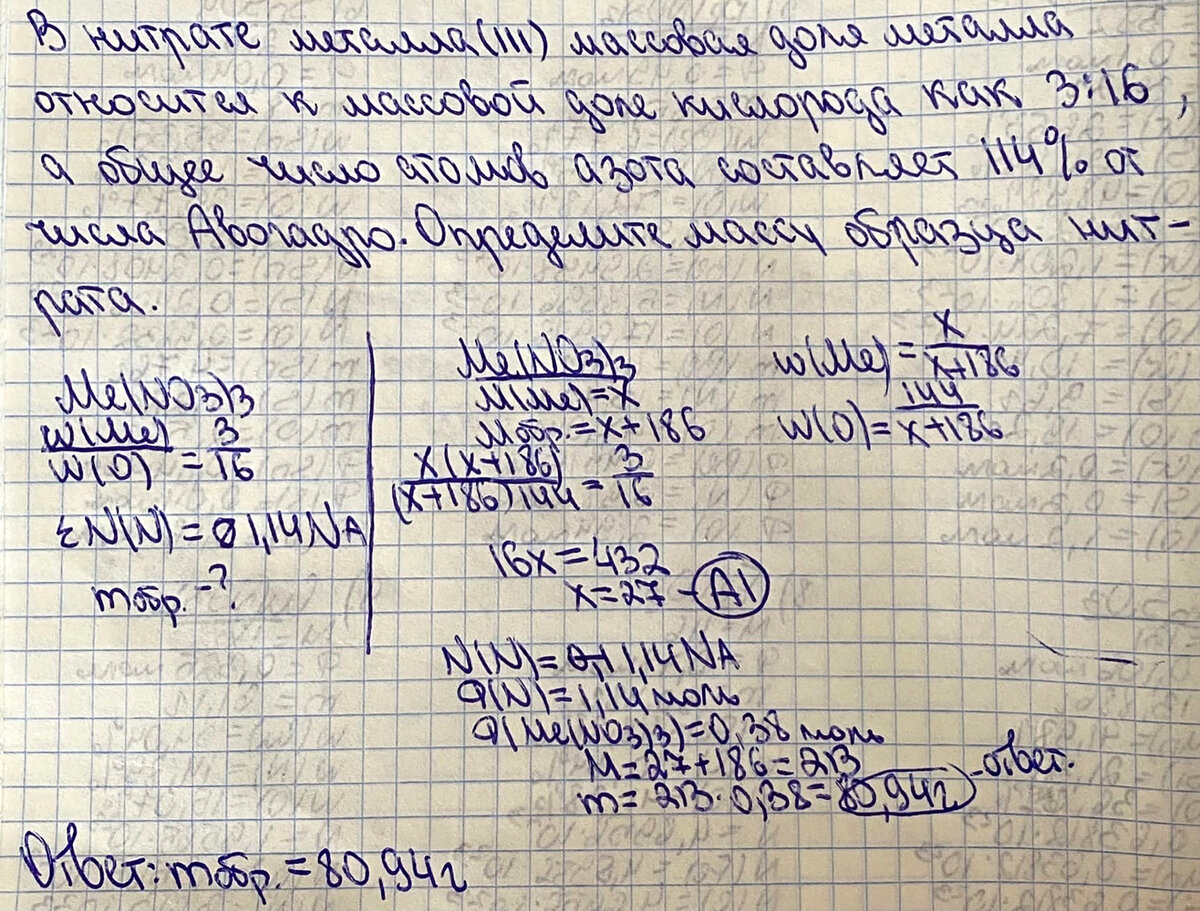 В нитрате металла(III) массовая доля металла
относится к массовой доле кислорода как 3:16,
а общее число атомов азота составляет 114% от
числа Авогадро. Определите массу образца нит-
рата.
Me(NO3)3
w(Me)/w(O) = 3/16
ΣN(N)=1,14NA
mобр. -?
Me(NO3)3
M(Me)=x
Mобр.=x+186
x(x+186)/(x+186)144 = 3/16
16x=432
x=27 - Al
w(Me) = x/x+186
w(O) = 144/x+186
N(N)=1,14NA
ϑ(N)=1,14моль
ϑ(Me(NO3)3)=0,38 моль
M=27+186=213
m= 213·0,38=80,94г -ответ.
Ответ: mобр.=80,94г